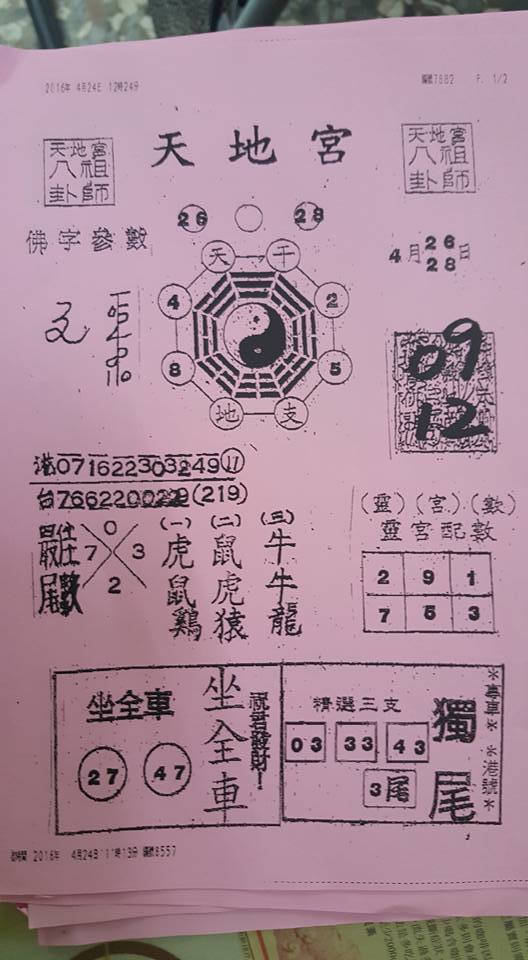 2016年 4月24日 12時24分 編號7882 P. 1/2
天地宮
八祖
卦師
天地宮
天地宮
八祖
卦師
26 28
佛字參數
4月26 28日
天 干
4 2
8 5
地 支
09
12
港071622303249⑪
台7662200229(219)
最佳
尾數
0
7 3
2
(一) (二) (三)
虎 鼠 牛
鼠 虎 牛
鷄 猿 龍
(靈)(宮)(數)
靈宮配數
2 9 1
7 5 3
坐全車
27 47
坐全車
祝君發財!
精選三支
03 33 43
3尾
獨尾
*專車* *港號*
2016年 4月24日 11時13分 編號8557